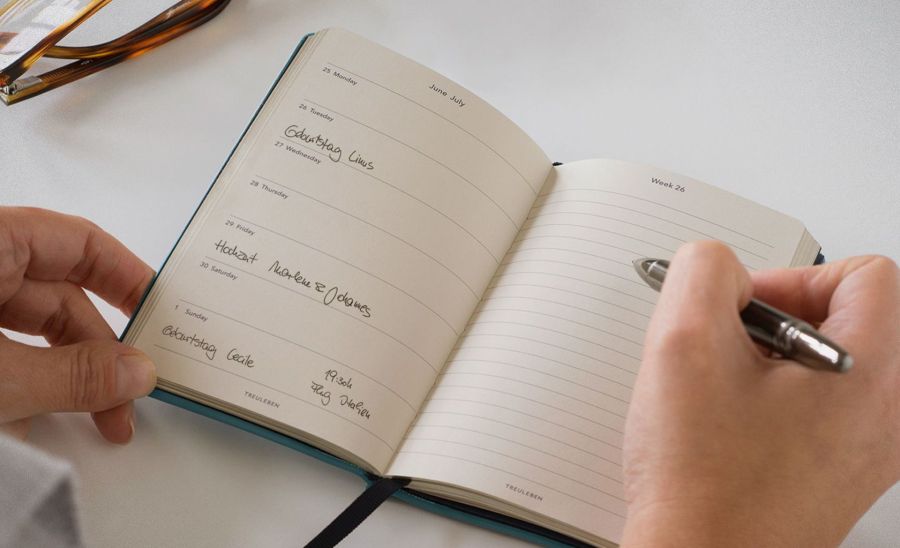 June July
25 Monday
26 Tuesday
Geburtstag Linus
27 Wednesday
28 Thursday
29 Friday
Hochzeit Marlene & Johannes
30 Saturday
1 Sunday
Geburtstag Cecile
19:30h
Flug Italien
TREULEBEN
Week 26
TREULEBEN